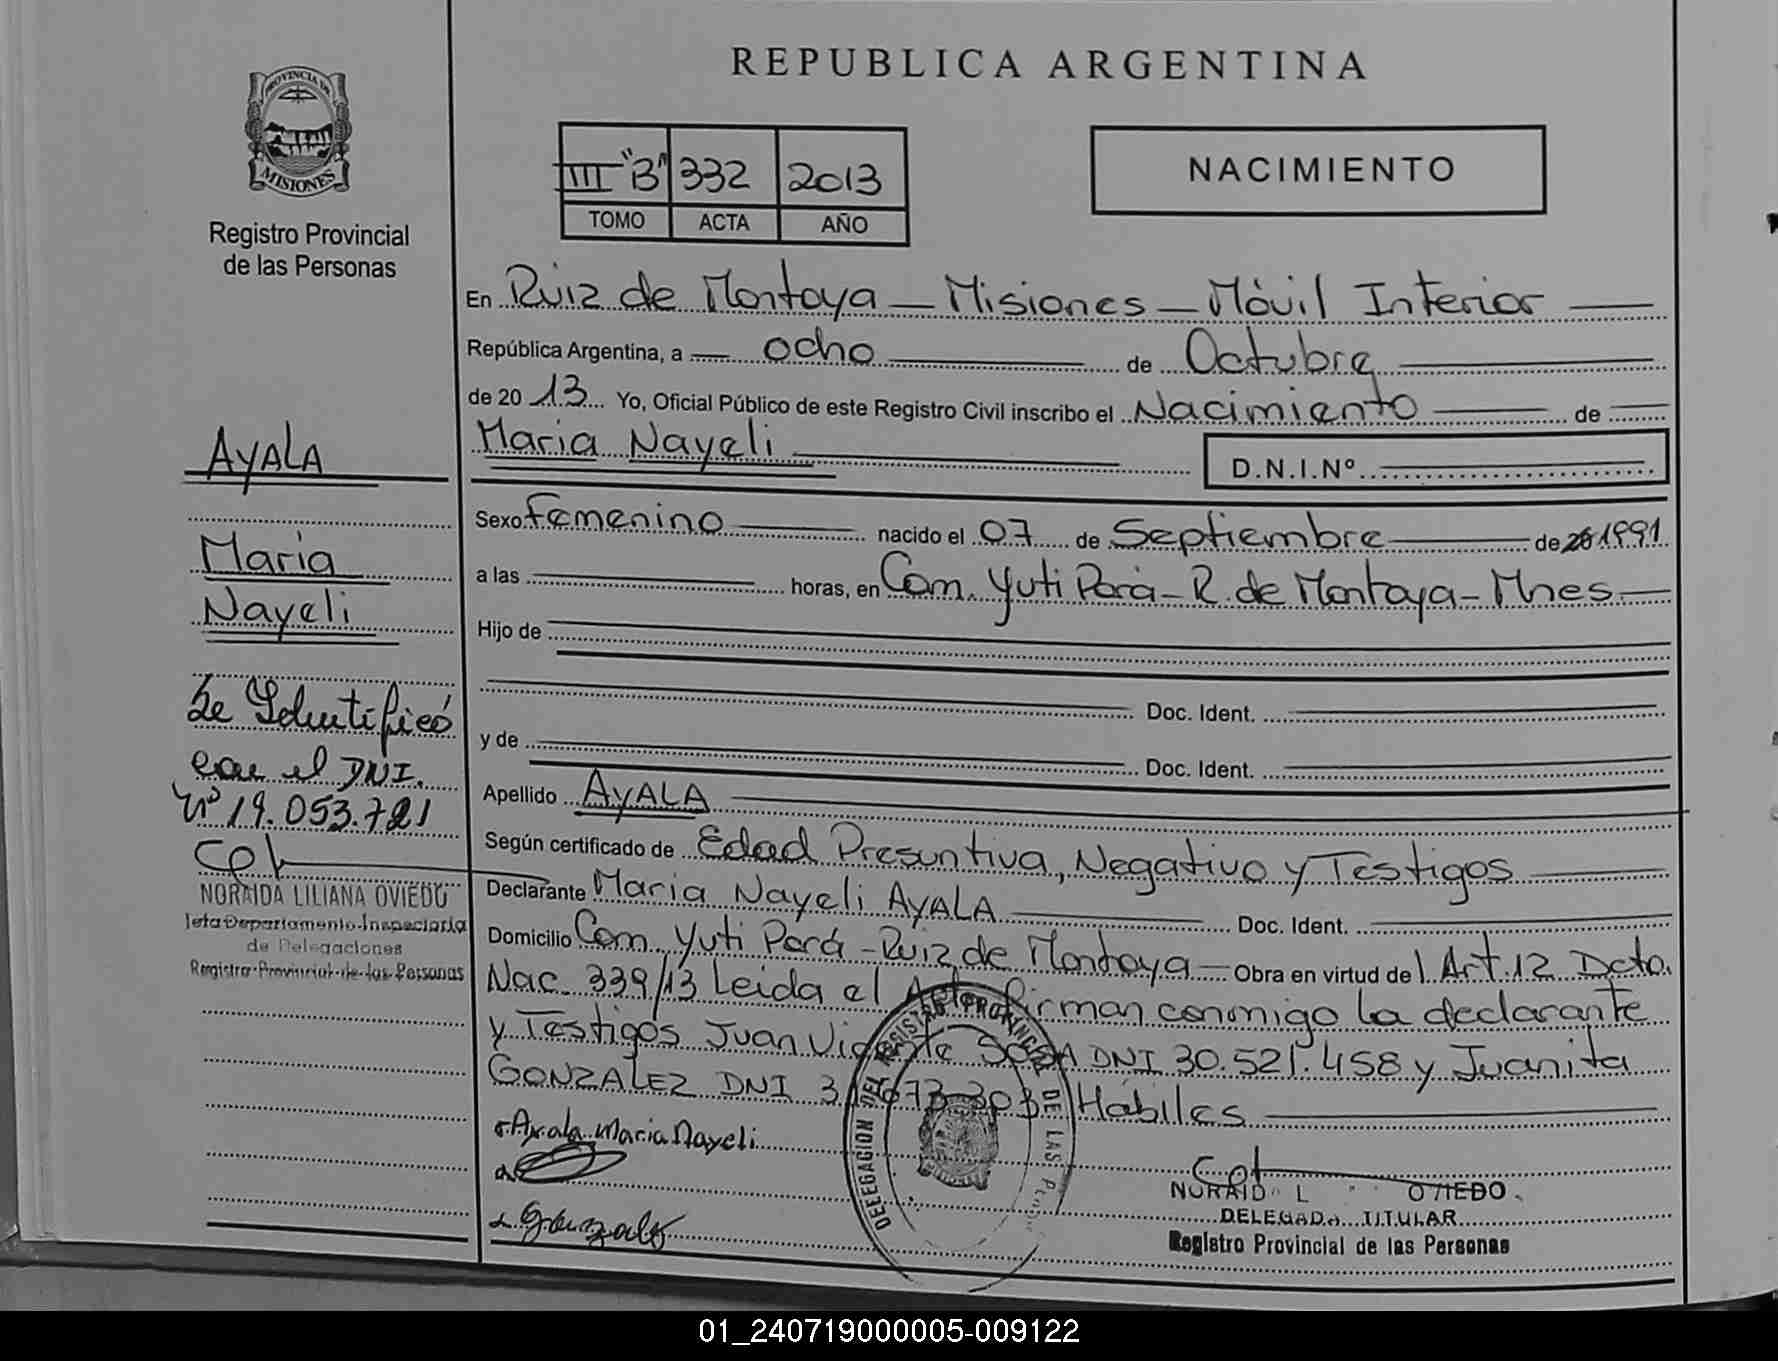 REPUBLICA ARGENTINA
PROVINCIA DE
MISIONES
Registro Provincial
de las Personas
III "B" 332 2013
TOMO ACTA AÑO
NACIMIENTO
En Ruiz de Montoya - Misiones - Móvil Interior
República Argentina, a ocho de Octubre
de 20 13 Yo, Oficial Público de este Registro Civil inscribo el Nacimiento de
Maria Nayeli
D.N.I.Nº
Sexo Femenino nacido el 07 de Septiembre de 20 1991
a las horas, en Com. Yuti Porá - R. de Montoya - Mnes
Hijo de
Doc. Ident.
y de Doc. Ident.
Apellido AYALA
Según certificado de Edad Presuntiva, Negativo y Testigos
Declarante Maria Nayeli AYALA Doc. Ident.
Domicilio Com. Yuti Porá - Ruiz de Montoya - Obra en virtud de l Art. 12 Dcto.
Nac. 339/13 Leida el Acta firman conmigo la declarante
y Testigos Juan Vicente SOSA DNI 30.521.458 y Juanita
GONZALEZ DNI 303 Hábiles
Ayala Maria Nayeli
Gonzalez
DELEGACION DEL REGISTRO PROVINCIAL DE LAS
OVIEDO
DELEGADA TITULAR
Registro Provincial de las Personas
AYALA
Maria
Nayeli
Se Identificó
con el DNI.
Nº 19.053.721
NORAIDA LILIANA OVIEDO
Jefa Departamento Inspectoria
de Delegaciones
Registro Provincial de las Personas
01_240719000005-009122